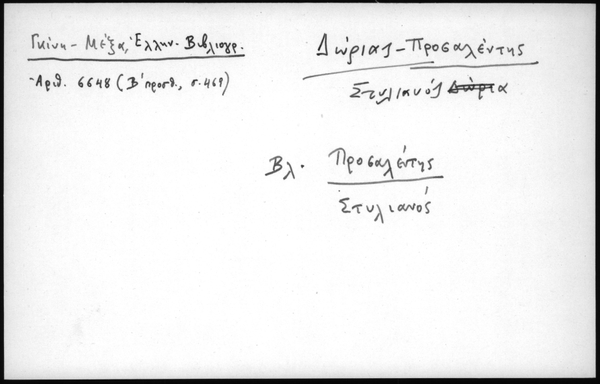 Γκίνη - Μέξα, Ἑλλην. Βιβλιογρ.
Ἀριθ. 6648 (Β' προσθ., σ. 469)
Δώριας - Προσαλέντης
Στυλιανός Δώρια
Βλ. Προσαλέντης
Στυλιανός